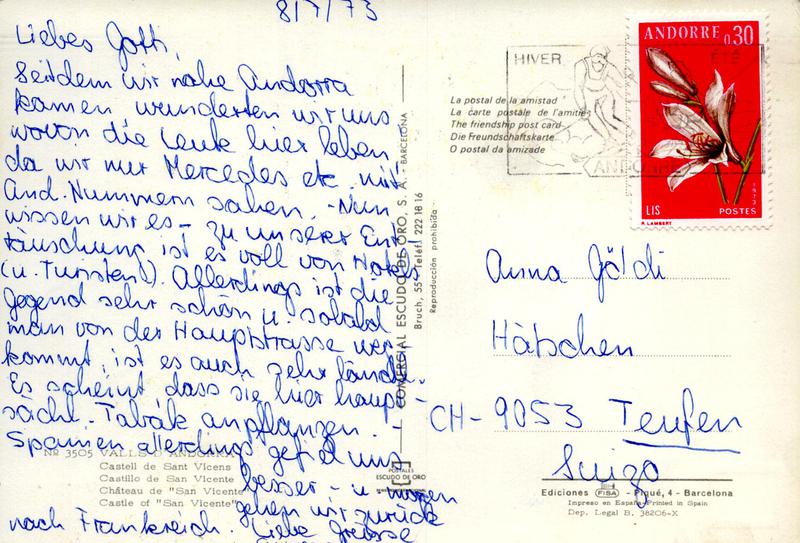 8/7/73
Liebes Gotti,
Seitdem wir nahe Andorra
kamen wunderten wir uns
wovon die Leute hier leben,
da wir nur Mercedes etc. mit
And. Nummern sahen. - Nun
wissen wir es - zu unserer Ent-
täuschung ist es voll von Hotels
(u. Turisten!). Allerdings ist die
Gegend sehr schön u. sobald
man von der Hauptstrasse weg-
kommt, ist es auch sehr ländl.
Es scheint, dass sie hier haupt-
sächl. Tabak anpflanzen. -
Spanien allerdings gefiel uns
besser - u. morgen
gehen wir zurück
nach Frankreich. Liebe Grüsse
Nº 3505 VALLS D'ANDORRA
Castell de Sant Vicens
Castillo de San Vicente
Château de "San Vicente"
Castle of "San Vicente"
COMERCIAL ESCUDO DE ORO, S. A. - BARCELONA
Bruch, 55 - Teléf. 222 18 16
Reproducción prohibida
POSTALES
ESCUDO DE ORO
HIVER
ÉTÉ
ANDORRE
La postal de la amistad
La carte postale de l'amitié
The friendship post card
Die Freundschaftskarte
O postal da amizade
ANDORRE 0,30
LIS
POSTES
1973
R. LAMBERT
Anna Göldi
Hätschen
CH-9053 Teufen
Suiza
Ediciones FISA - Piqué, 4 - Barcelona
Impreso en España-Printed in Spain
Dep. Legal B. 38206-X